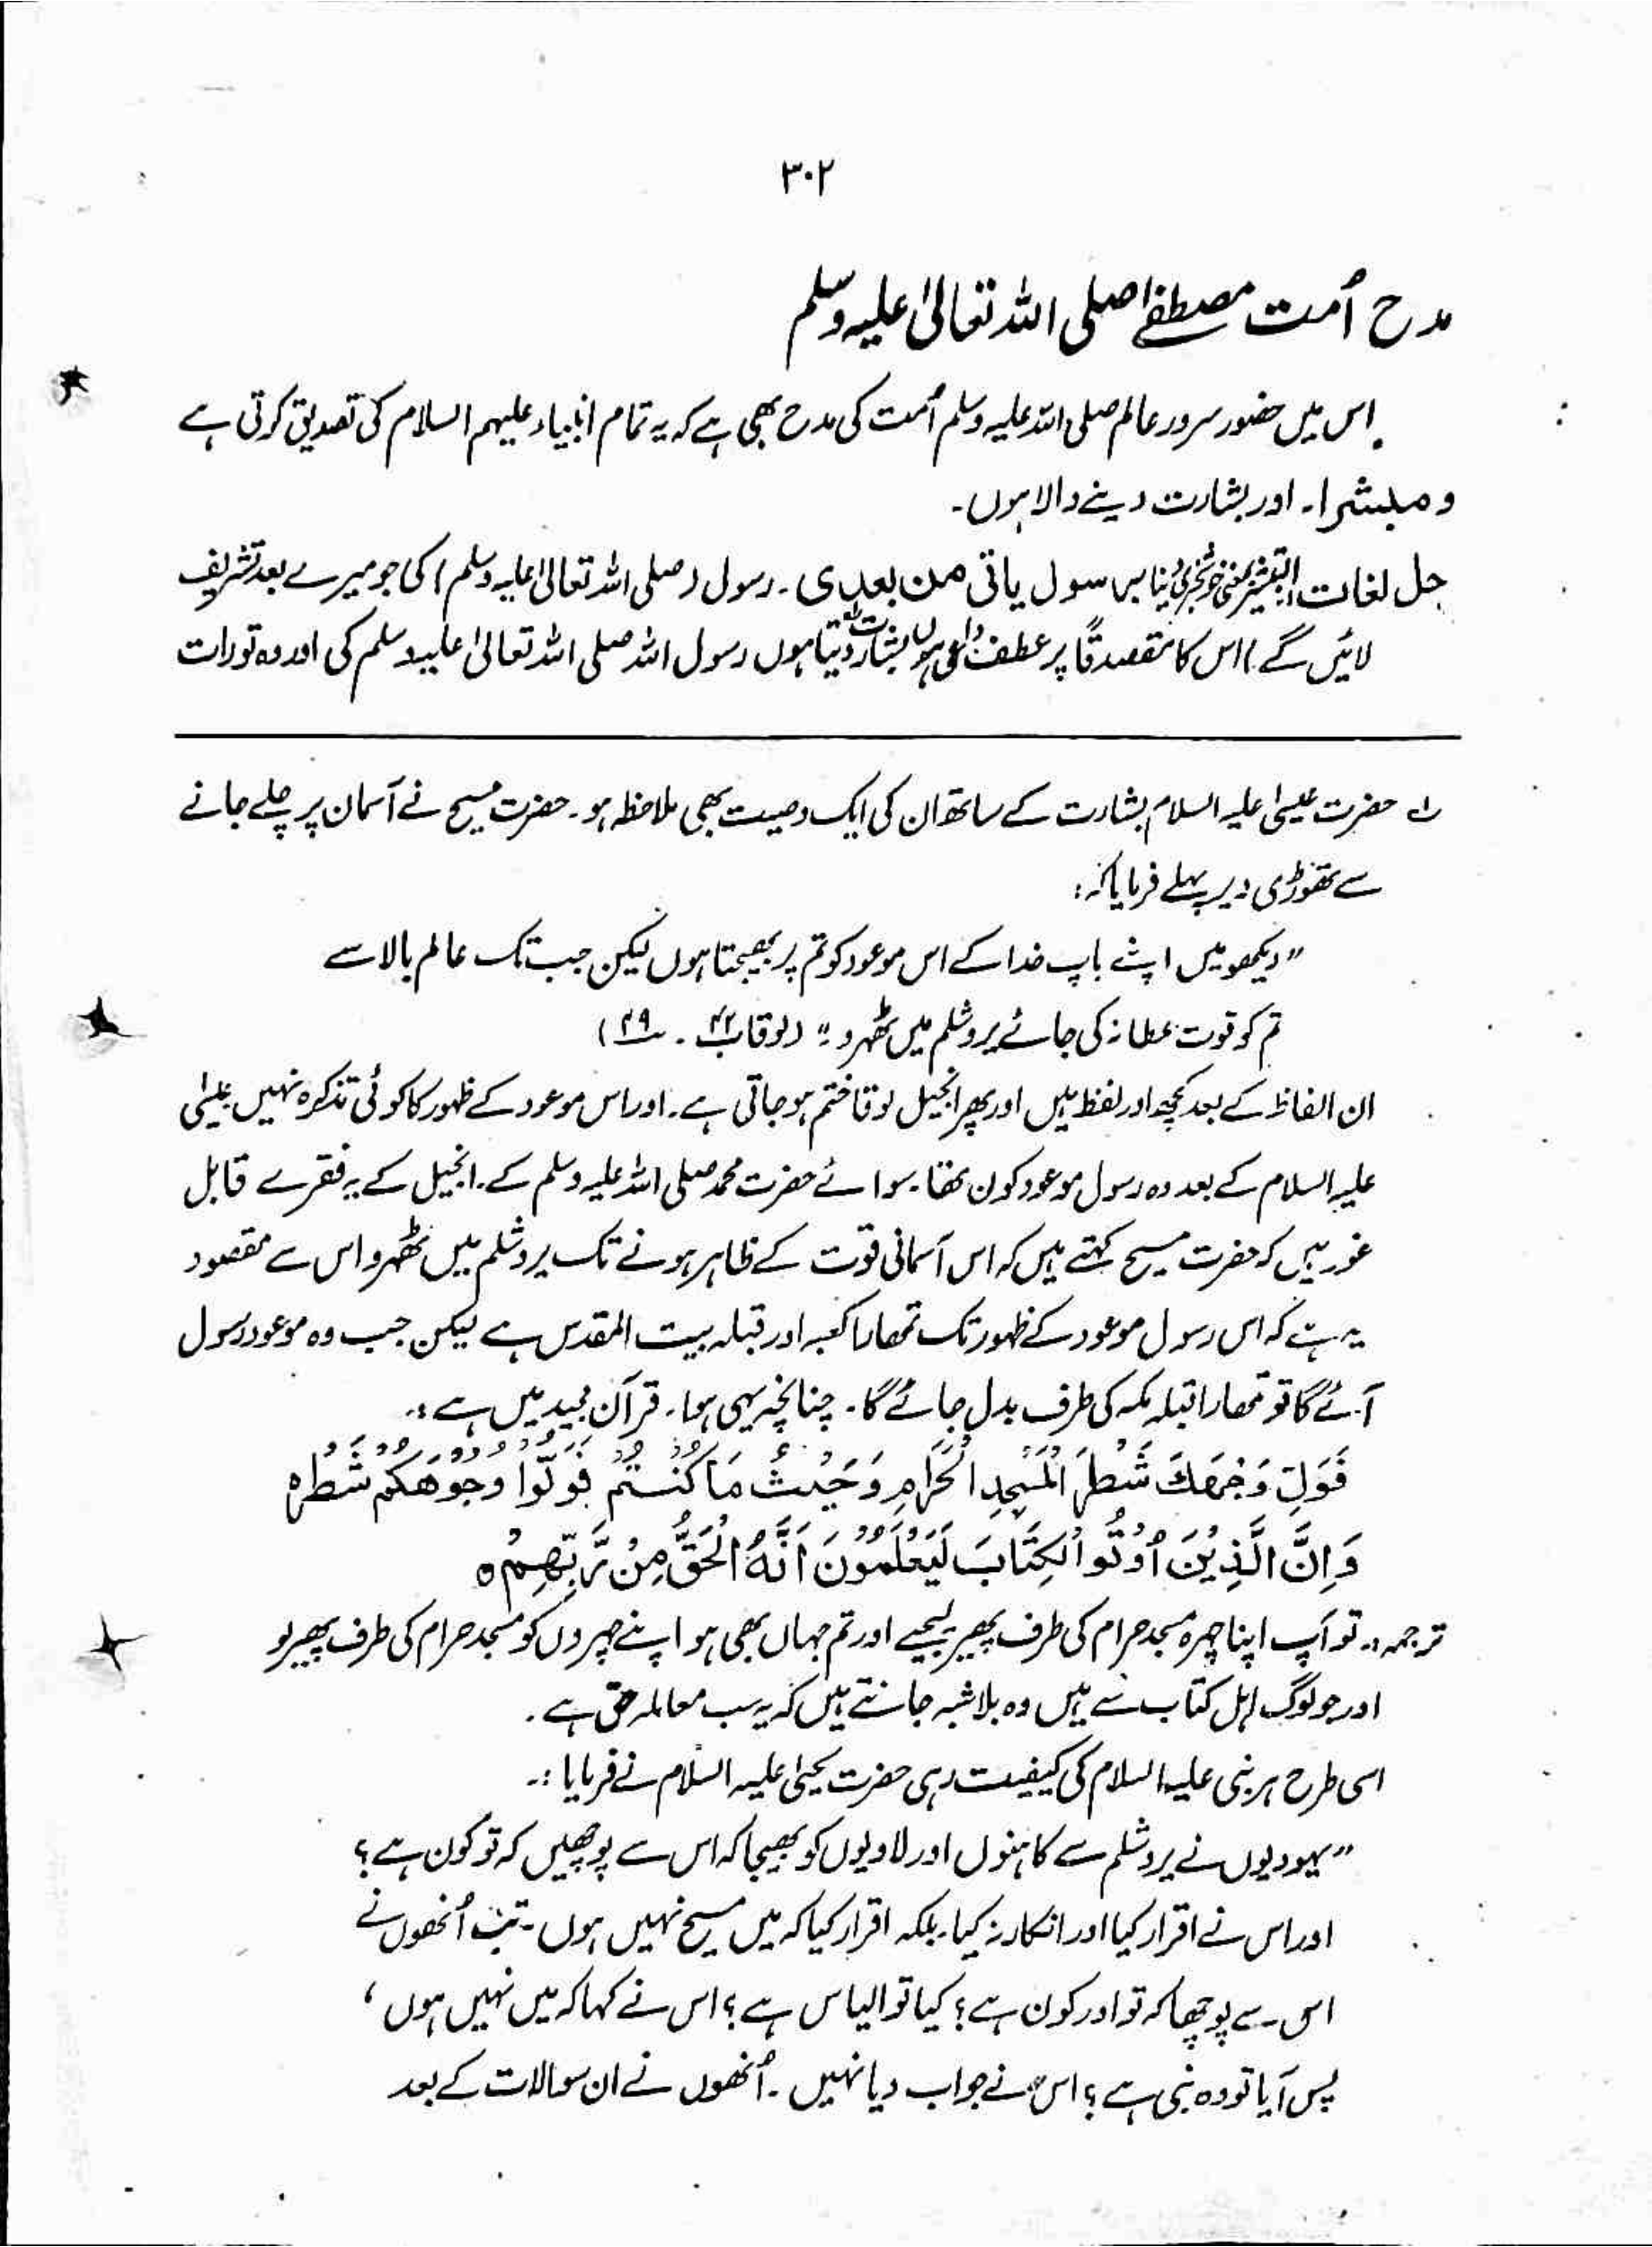 ۳۰۲
مدح اُمت مصطفےٰ صلی اللہ تعالیٰ علیہ وسلم
اس میں حضور سرور عالم صلی اللہ علیہ وسلم اُمت کی مدح بھی ہے کہ یہ تمام انبیاء علیہم السلام کی تصدیق کرتی ہے
ومبشرا۔ اور بشارت دینے والا ہوں۔
حل لغات التبشیر بمعنی خوشخبری دینا برسول یاتی من بعدی۔ رسول (صلی اللہ تعالیٰ علیہ وسلم) کی جو میرے بعد تشریف
لائیں گے) اس کا مصدقًا پر عطف بشارت دیتا ہوں رسول اللہ صلی اللہ تعالیٰ علیہ وسلم کی اور وہ تورات
لے حضرت عیسیٰ علیہ السلام بشارت کے ساتھ ان کی ایک وصیت بھی ملاحظہ ہو۔ حضرت مسیح نے آسمان پر چلے جانے
سے تھوڑی دیر پہلے فرمایا کہ:
"دیکھو میں اپنے باپ خدا کے اس موعود کو تم پر بھیجتا ہوں لیکن جب تک عالم بالا سے
تم کو قوت عطا نہ کی جائے یروشلم میں ٹھہرو" (لوقا باب ۲۴۔ ۴۹)
ان الفاظ کے بعد کچھ اور لفظ ہیں اور پھر انجیل لوقا ختم ہو جاتی ہے۔ اور اس موعود کے ظہور کا کوئی تذکرہ نہیں عیسٰی
علیہ السلام کے بعد وہ رسول موعود کون تھا۔ سوائے حضرت محمد صلی اللہ علیہ وسلم کے۔ انجیل کے یہ فقرے قابل
غور ہیں کہ حضرت مسیح کہتے ہیں کہ اس آسمانی قوت کے ظاہر ہونے تک یروشلم میں ٹھہرو اس سے مقصود
یہ ہے کہ اس رسول موعود کے ظہور تک تمھارا کعبہ اور قبلہ بیت المقدس ہے لیکن جب وہ موعود رسول
آئے گا تو تمھارا قبلہ مکہ کی طرف بدل جائے گا۔ چنانچہ یہی ہوا۔ قرآن مجید میں ہے:۔
فَوَلِّ وَجْهَكَ شَطْرَ الْمَسْجِدِ الْحَرَامِ وَحَيْثُ مَا كُنْتُمْ فَوَلُّوْا وُجُوْهَكُمْ شَطْرَهٗ
وَاِنَّ الَّذِيْنَ اُوْتُوا الْكِتَابَ لَيَعْلَمُوْنَ اَنَّهُ الْحَقُّ مِنْ رَّبِّهِمْ ہ
ترجمہ:۔ تو آپ اپنا چہرہ مسجد حرام کی طرف پھیر لیجیے اور تم جہاں بھی ہو اپنے چہروں کو مسجد حرام کی طرف پھیر لو
اور جو لوگ اہل کتاب سے ہیں وہ بلاشبہ جانتے ہیں کہ یہ سب معاملہ حق ہے۔
اسی طرح ہر نبی علیہ السلام کی کیفیت رہی حضرت یحییٰ علیہ السلام نے فرمایا:۔
"یہودیوں نے یروشلم سے کاہنوں اور لاویوں کو بھیجا کہ اس سے پوچھیں کہ تو کون ہے؟
اور اس نے اقرار کیا اور انکار نہ کیا۔ بلکہ اقرار کیا کہ میں مسیح نہیں ہوں۔ تب اُنھوں نے
اس سے پوچھا کہ تو اور کون ہے؟ کیا تو الیاس ہے؟ اس نے کہا کہ میں نہیں ہوں،
پس آیا تو وہ نبی ہے؟ اس نے جواب دیا نہیں۔ اُنھوں نے ان سوالات کے بعد